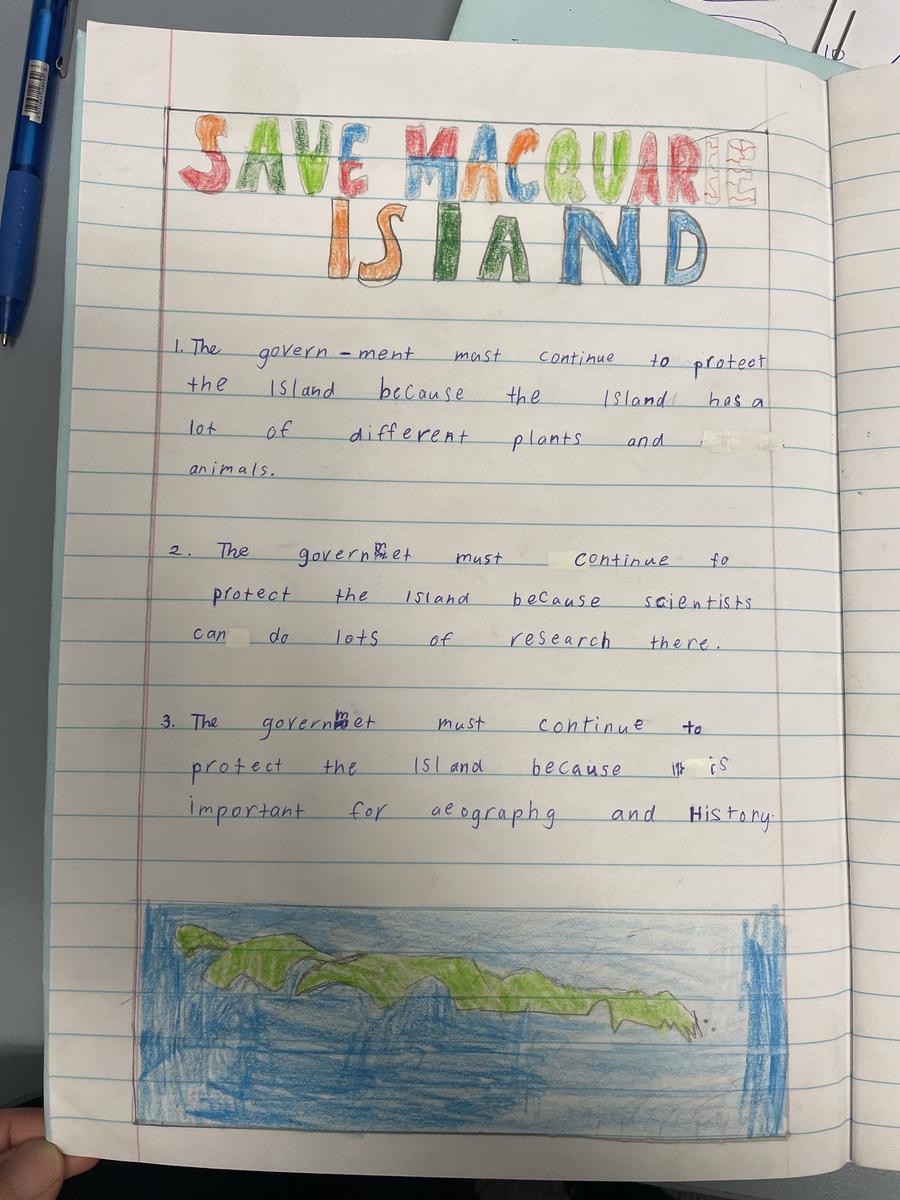 SAVE MACQUARIE
ISLAND
1. The govern-ment must continue to protect
the Island because the Island has a
lot of different plants and
animals.
2. The governmet must continue to
protect the Island because scientists
can do lots of research there.
3. The governmet must continue to
protect the Island because it is
important for aeographg and History.